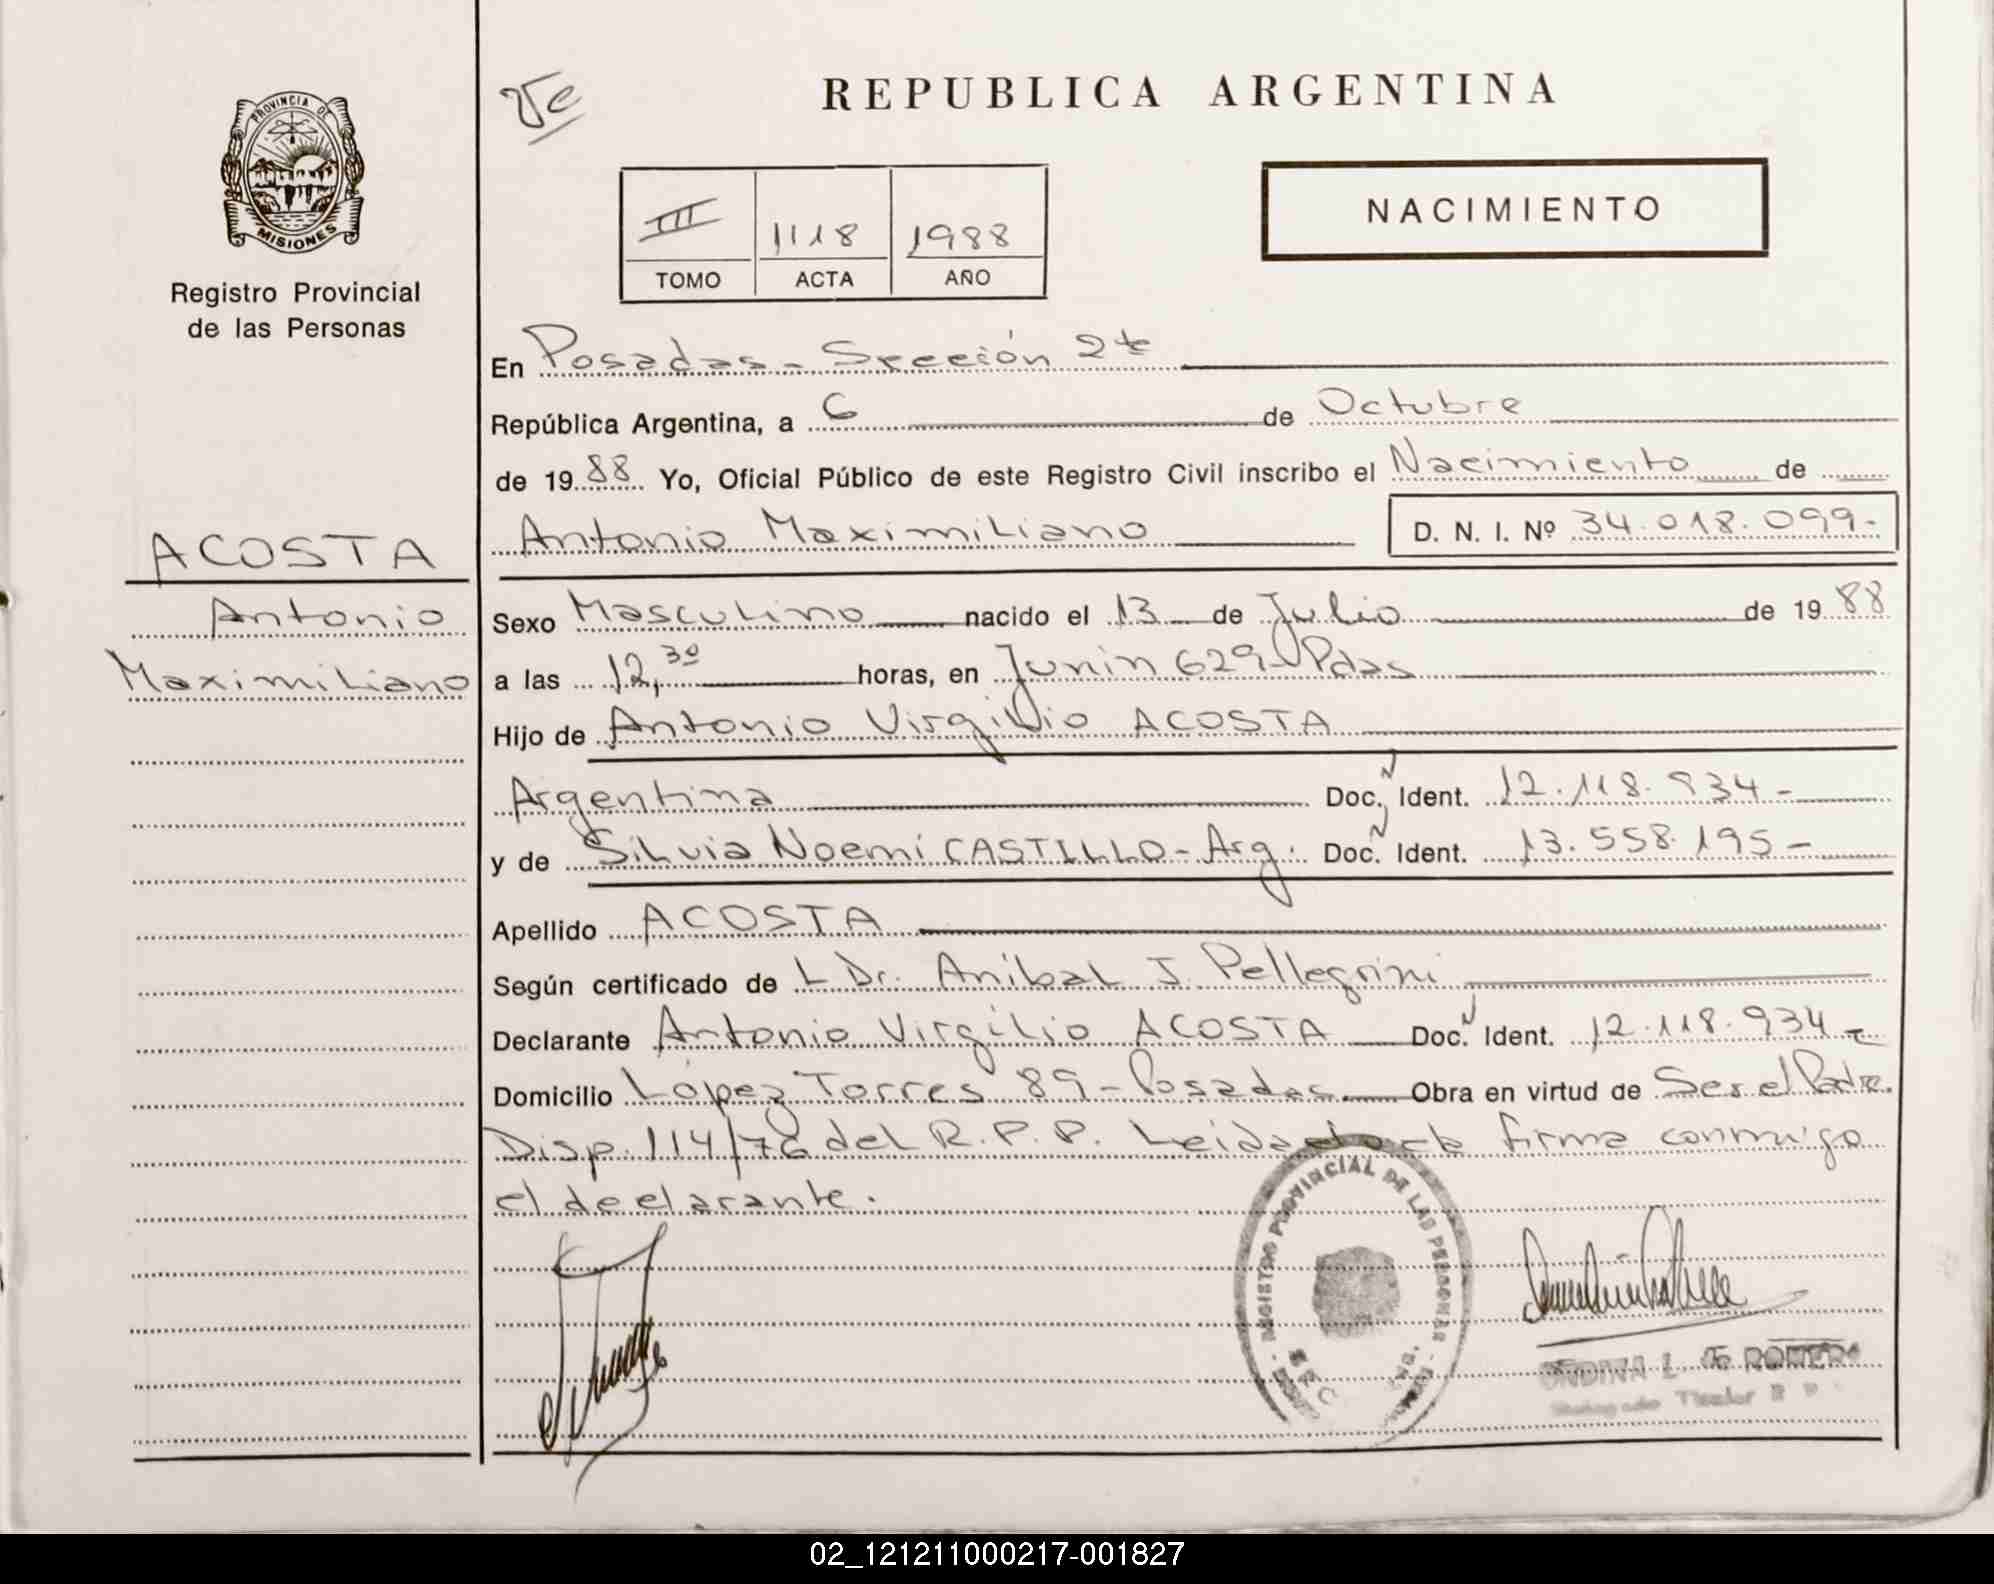 REPUBLICA ARGENTINA
PROVINCIA DE
MISIONES
Registro Provincial
de las Personas
III 1118 1988
TOMO ACTA AÑO
NACIMIENTO
En Posadas - Sección 2ª
República Argentina, a 6 de Octubre
de 1988 Yo, Oficial Público de este Registro Civil inscribo el Nacimiento de
Antonio Maximiliano D. N. I. Nº 34.018.099-
ACOSTA
Antonio
Maximiliano
Sexo Masculino nacido el 13 de Julio de 1988
a las 12,30 horas, en Junin 629 - Pdas
Hijo de Antonio Virgilio ACOSTA
Argentina Doc. N Ident. 12.118.934-
y de Silvia Noemí CASTILLO - Arg. Doc. N Ident. 13.558.195-
Apellido ACOSTA
Según certificado de L Dr. Aníbal J. Pellegrini
Declarante Antonio Virgilio ACOSTA Doc. N Ident. 12.118.934-
Domicilio López Torres 89 - Posadas. Obra en virtud de Ser el Padre.
Disp. 114/76 del R.P.P. Leida acta firma conmigo
el declarante.
REGISTRO PROVINCIAL DE LAS PERSONAS
ROMERO
Titular
02_121211000217-001827